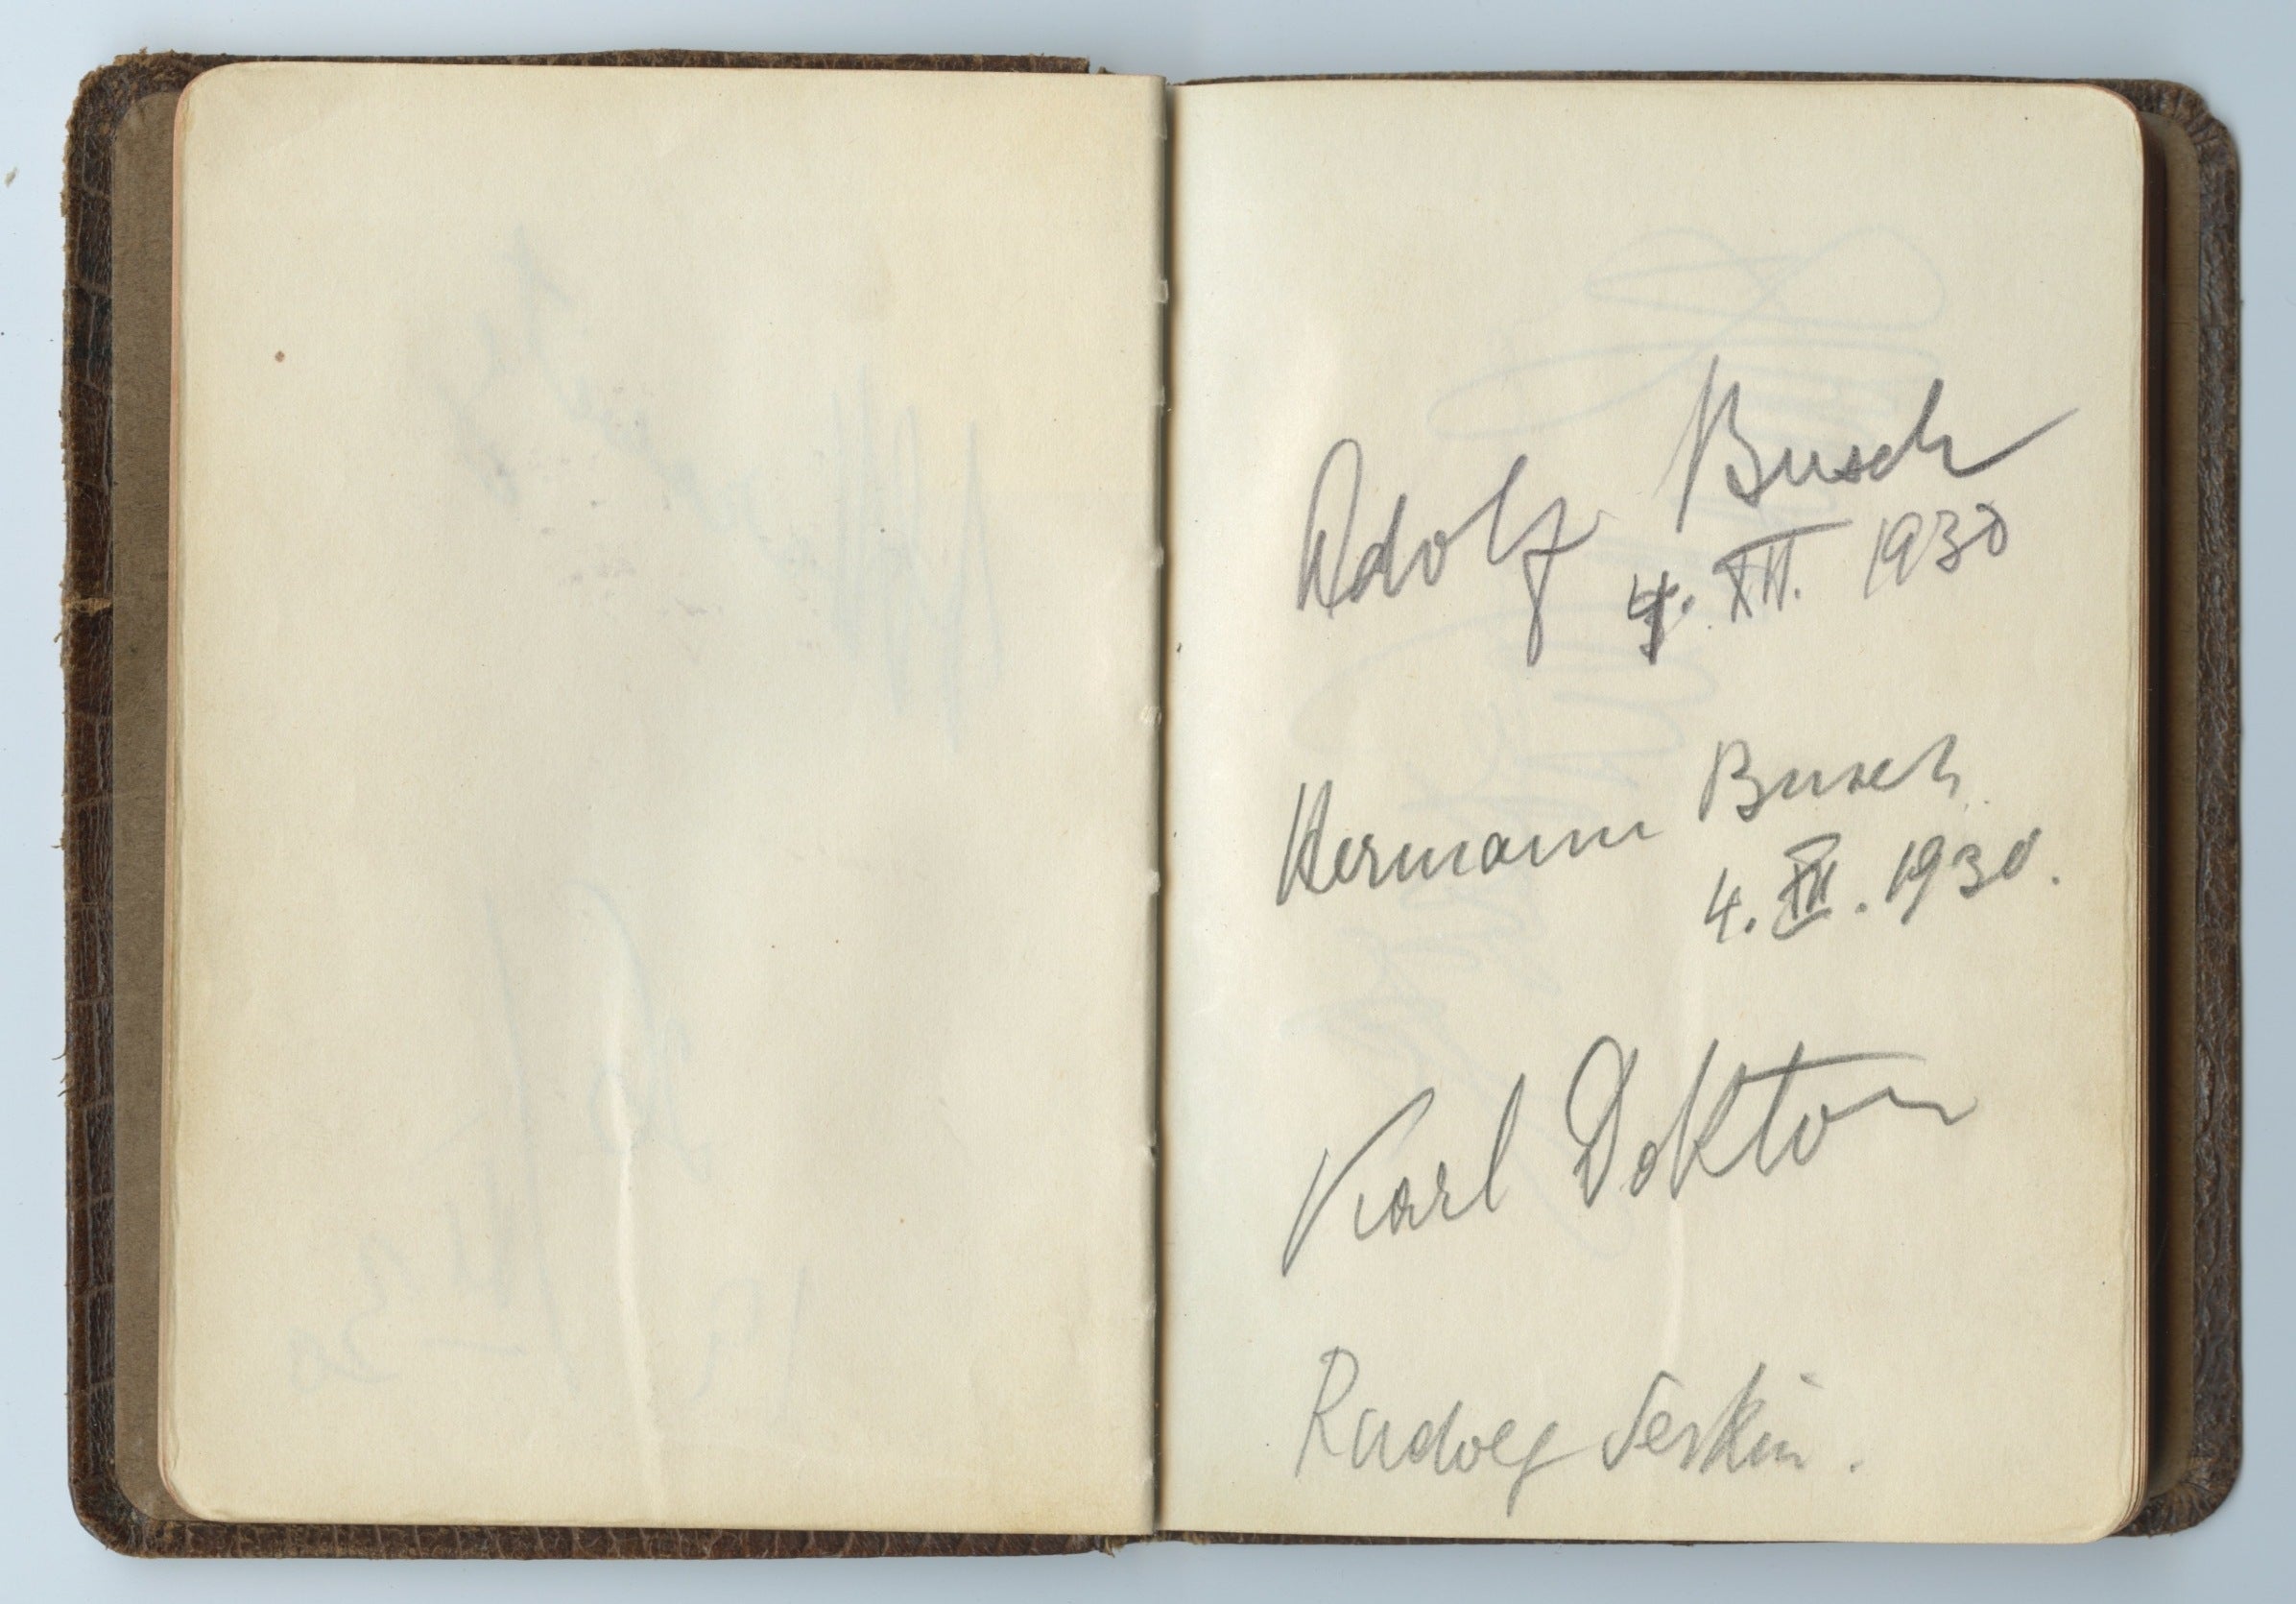 Adolf Busch
4. XII. 1930
Hermann Busch
4. XII. 1930.
Karl Doktor
Rudolf Serkin.